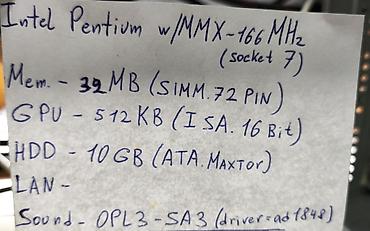 Intel Pentium w/MMX-166 MHz
(socket 7)
Mem. - 32 MB (SIMM. 72 PIN)
GPU - 512 KB (ISA. 16 Bit)
HDD - 10 GB (ATA. MAXTOR)
LAN -
Sound - OPL3-SA3 (driver=ad1848)